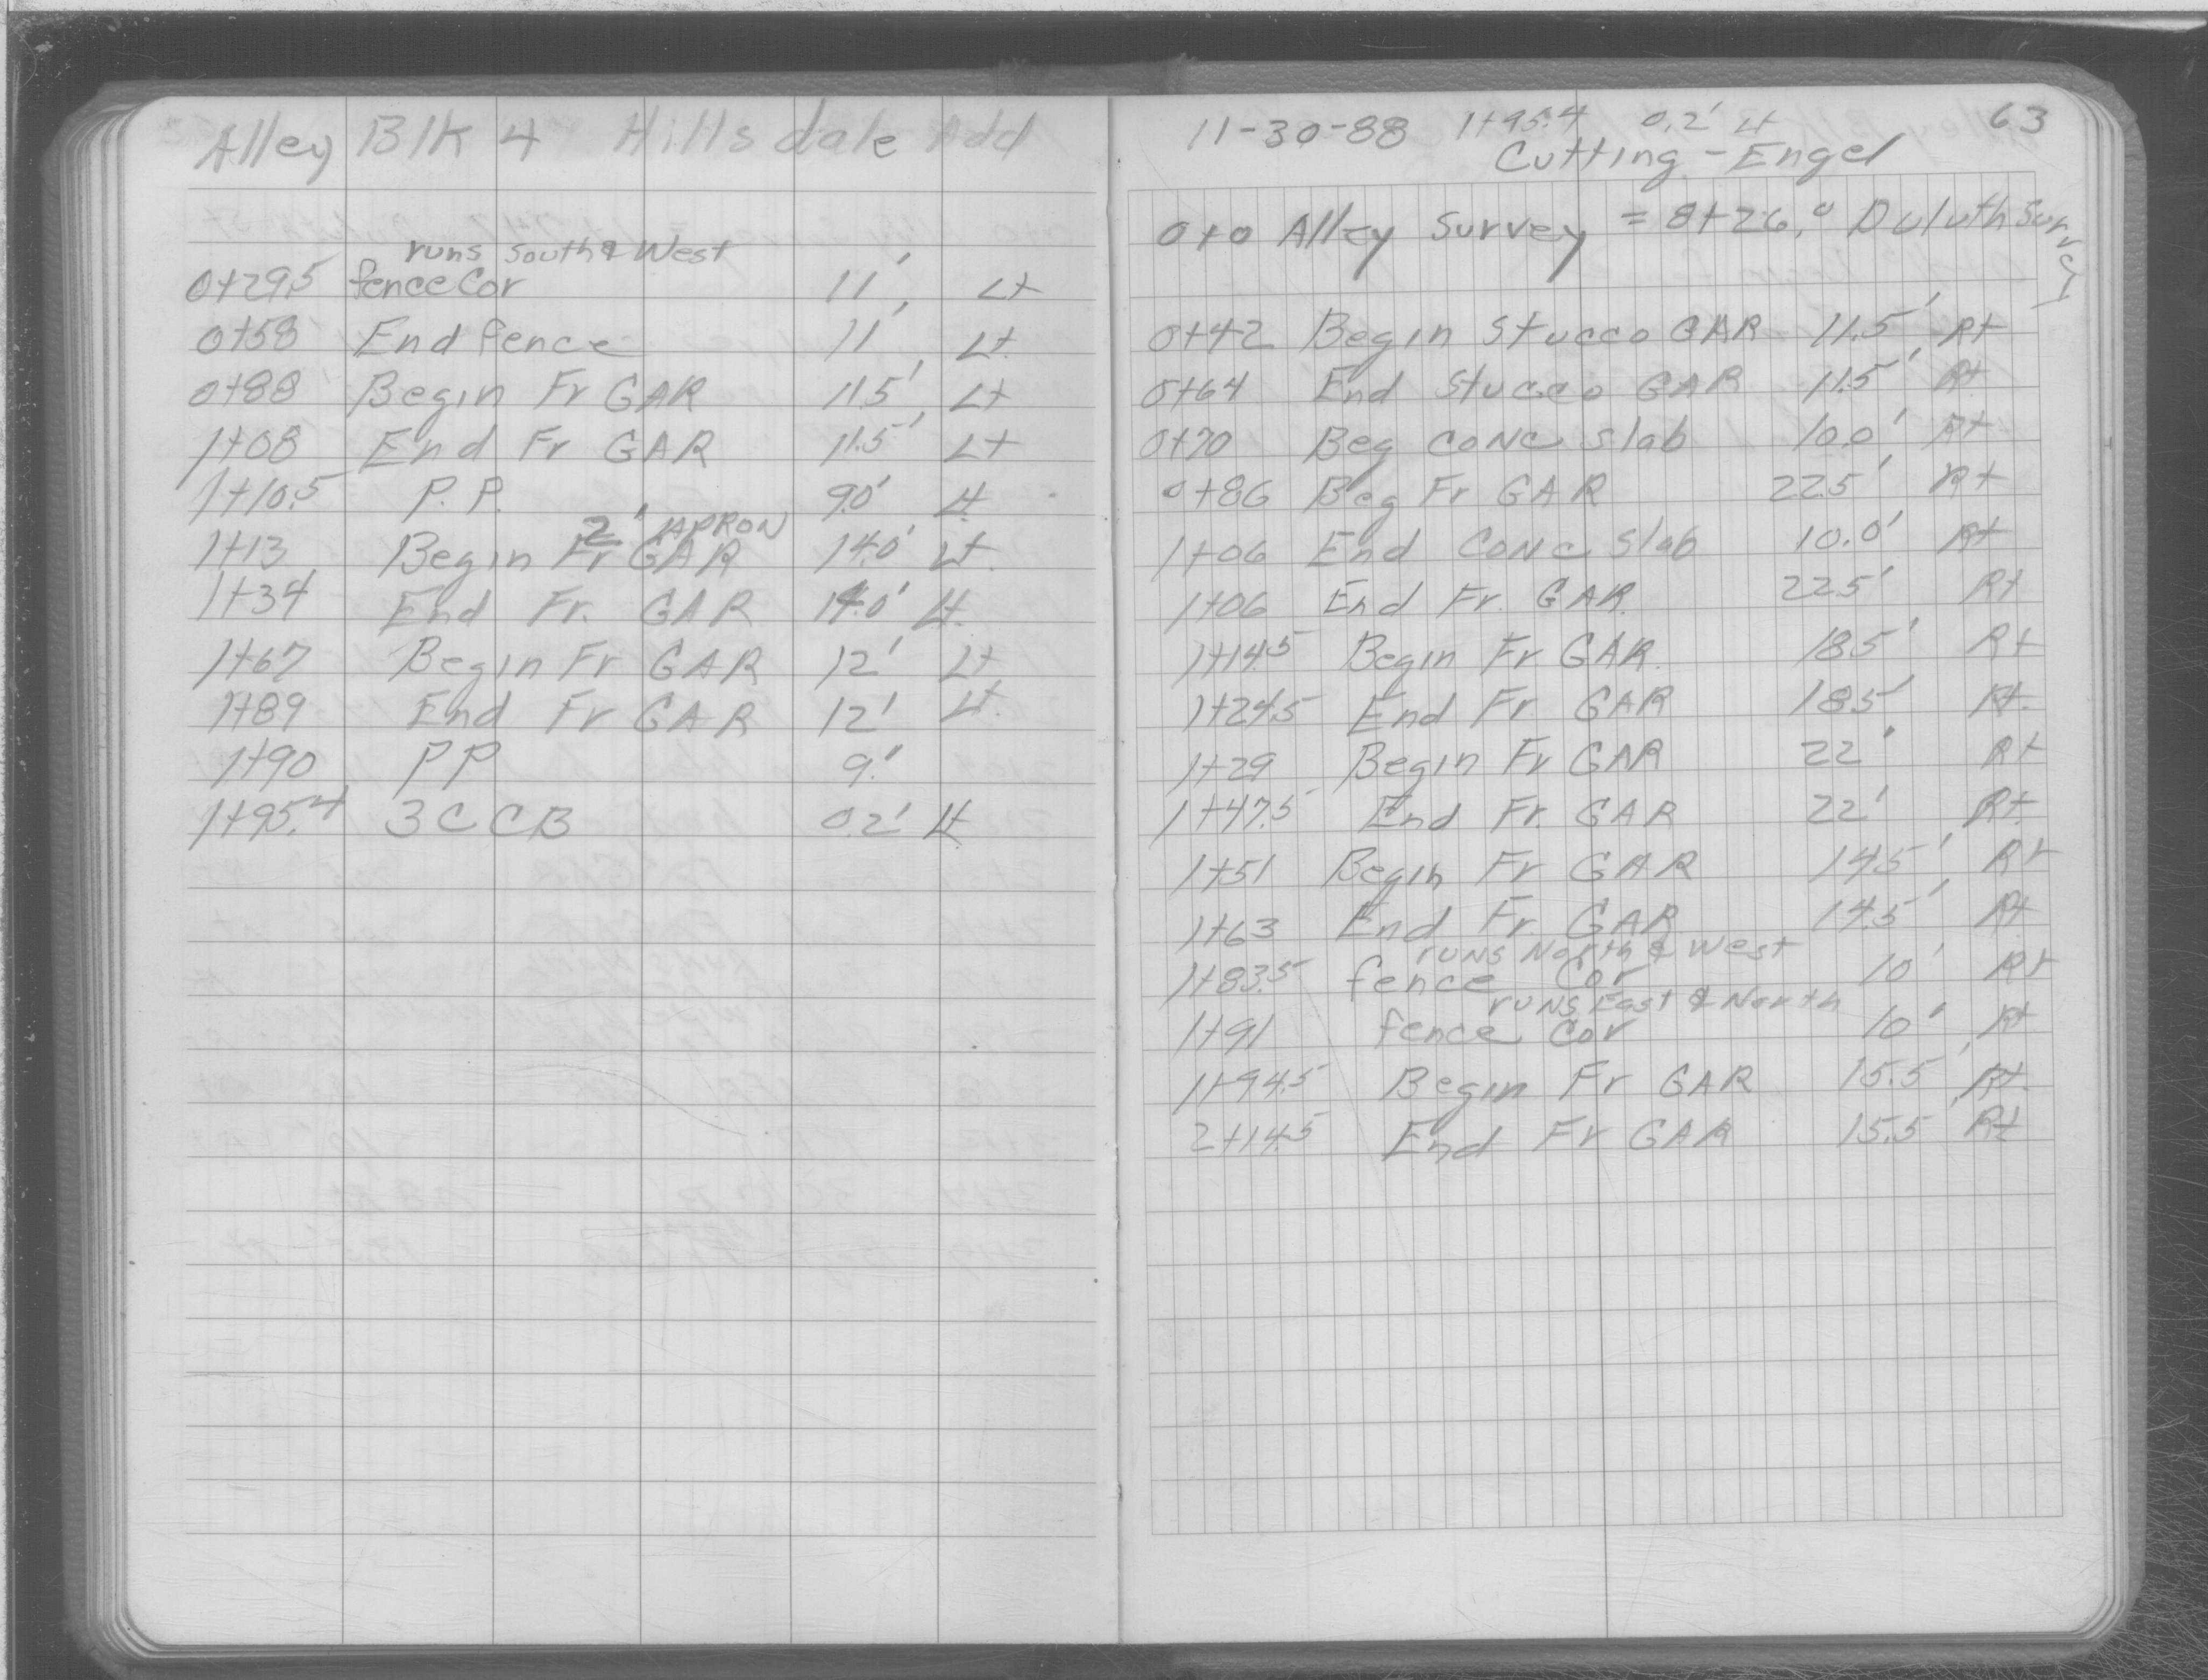 Alley Blk 4 Hillsdale Add
runs South & West
0+29.5 fence Cor 11', Lt
0+58 End fence 11', Lt.
0+88 Begin Fr GAR 11.5', Lt
1+08 End Fr GAR 11.5' Lt
1+10.5 P.P. 9.0' Lt.
2' APRON
1+13 Begin Fr GAR 14.0' Lt.
1+34 End Fr. GAR 14.0' Lt.
1+67 Begin Fr GAR 12' Lt.
1+89 End Fr GAR 12' Lt.
1+90 PP 9.'
1+95.4 3 C C B 0.2' Lt.
11-30-88 1+95.4 0.2' Lt 63
Cutting - Engel
0+0 Alley Survey = 8+26.0 Duluth Survey
0+42 Begin Stucco GAR 11.5', Rt
0+64 End Stucco GAR 11.5', Rt
0+70 Beg CONC Slab 10.0' Rt
0+86 Beg Fr GAR 22.5', Rt
1+06 End CONC Slab 10.0' Rt
1+06 End Fr. GAR. 22.5', Rt
1+14.5 Begin Fr GAR. 18.5', Rt
1+24.5 End Fr. GAR 18.5' Rt.
1+29 Begin Fr GAR 22' Rt
1+47.5 End Fr. GAR 22' Rt.
1+51 Begin Fr GAR 14.5', Rt
1+63 End Fr. GAR 14.5' Rt
runs North & West
1+83.5 fence Cor 10' Rt
runs East & North
1+91 fence Cor 10', Rt
1+94.5 Begin Fr GAR 15.5', Rt.
2+14.5 End Fr GAR 15.5' Rt